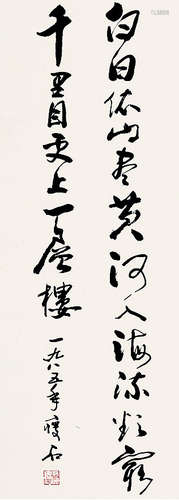 白日依山尽黄河入海流欲穷
千里目更上一层楼
一九八五年瘦石